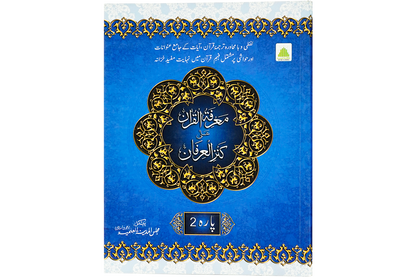 لفظی و بامحاورہ ترجمہ قرآن، آیات کے جامع عنوانات
اور حواشی پر مشتمل فہم قرآن میں نہایت مفید خزانہ
معرفۃ القرآن
علی
کنز العرفان
پارہ 2
مجلس المدینۃ العلمیہ